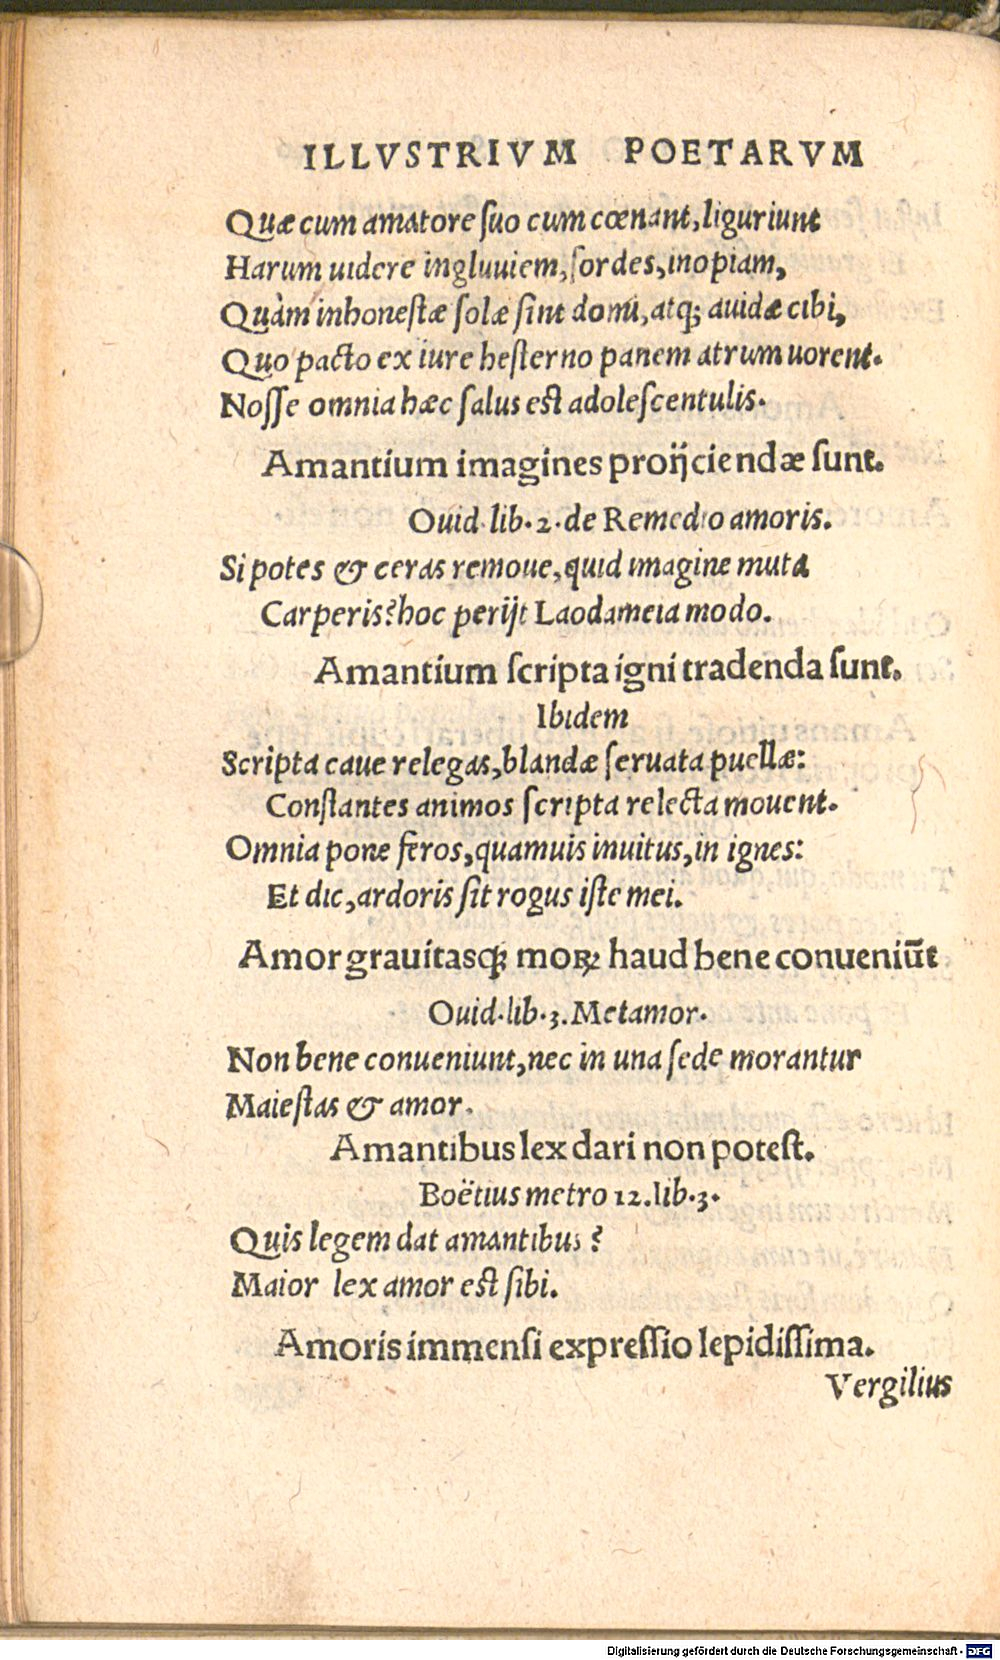 ILLVSTRIVM POETARVM
Quæ cum amatore ſuo cum cœnant, liguriunt
Harum uidere ingluuiem, ſordes, inopiam,
Quàm inhoneſtæ ſolæ ſint domi, atq; auidæ cibi,
Quo pacto ex iure heſterno panem atrum uorent.
Noſſe omnia hæc ſalus eſt adoleſcentulis.
Amantium imagines proijciendæ ſunt.
Ouid. lib. 2. de Remedio amoris.
Si potes & ceras remoue, quid imagine muta
Carperis? hoc perijt Laodameia modo.
Amantium ſcripta igni tradenda ſunt.
Ibidem
Scripta caue relegas, blandæ ſeruata puellæ:
Conſtantes animos ſcripta relecta mouent.
Omnia pone feros, quamuis inuitus, in ignes:
Et dic, ardoris ſit rogus iſte mei.
Amor grauitasq́; moꝝ haud bene conueniūt
Ouid. lib. 3. Metamor.
Non bene conueniunt, nec in una ſede morantur
Maieſtas & amor.
Amantibus lex dari non poteſt.
Boëtius metro 12. lib. 3.
Quis legem dat amantibus?
Maior lex amor eſt ſibi.
Amoris immenſi expreſſio lepidiſſima.
Vergilius
Digitalisierung gefördert durch die Deutsche Forschungsgemeinschaft - DFG